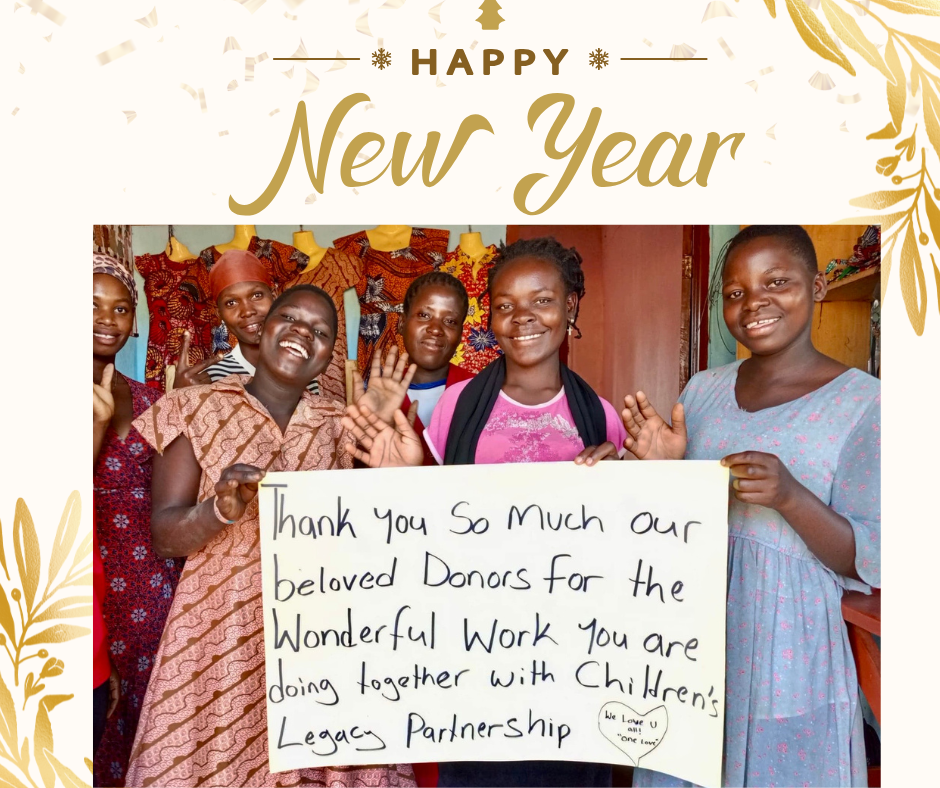 HAPPY
New Year
Thank you So Much our
beloved Donors for the
Wonderful Work you are
doing together with Children's
Legacy Partnership
We Love U
all!
"One Love"